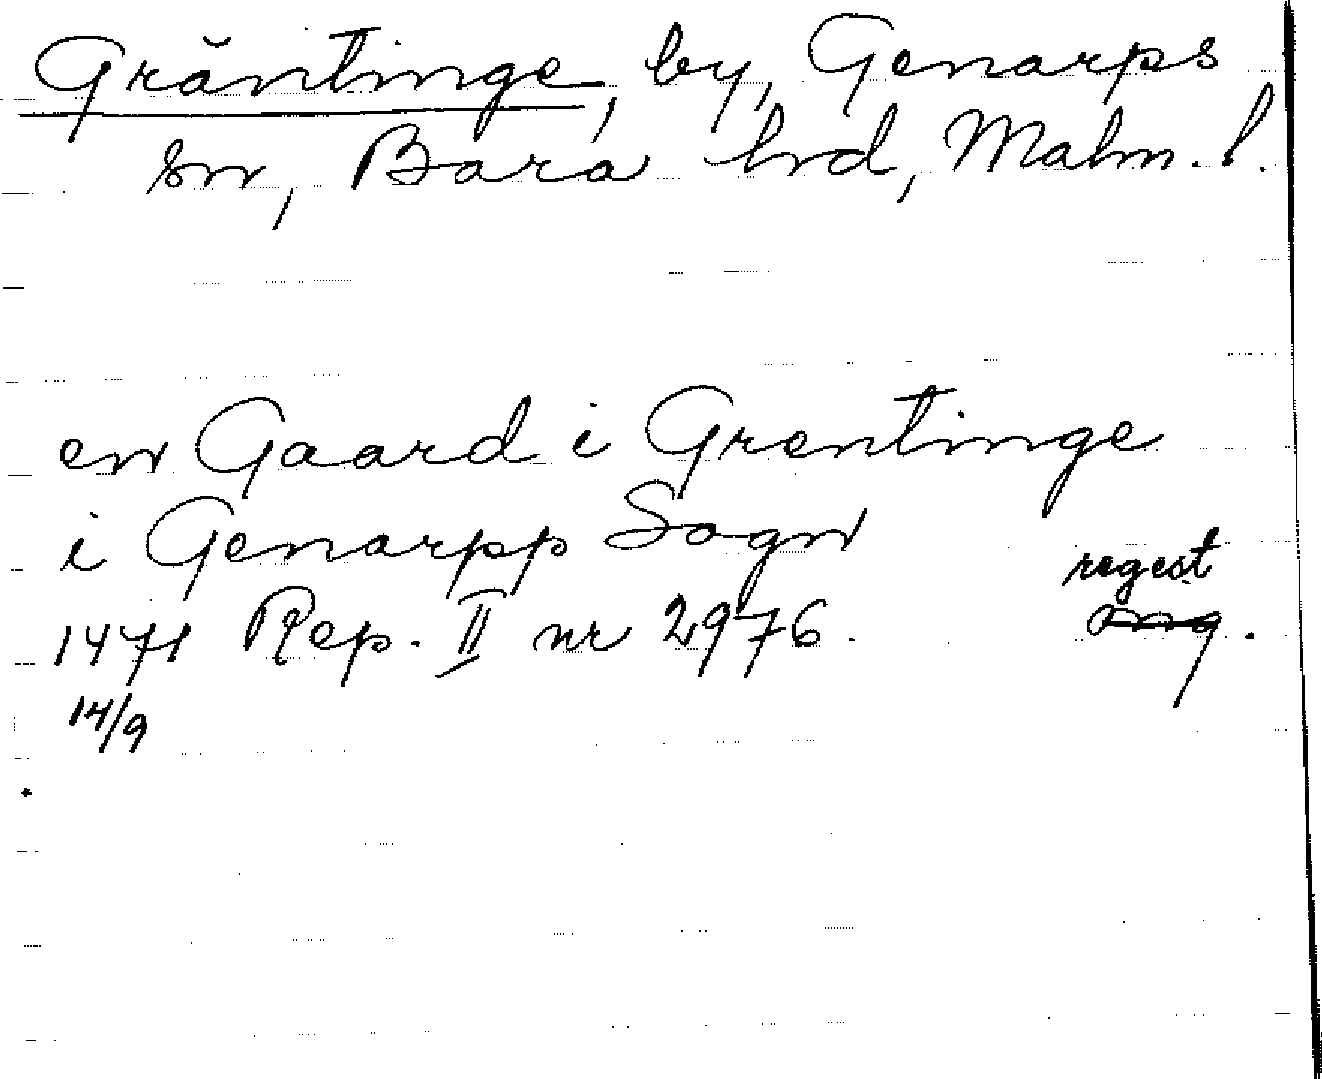 Gräntinge, by, Genarps
sn, Bara hrd, Malm. l.
en Gaard i Grentinge
i Genarpp Sogn
regest
1471 Rep. II nr 2976.
14/9